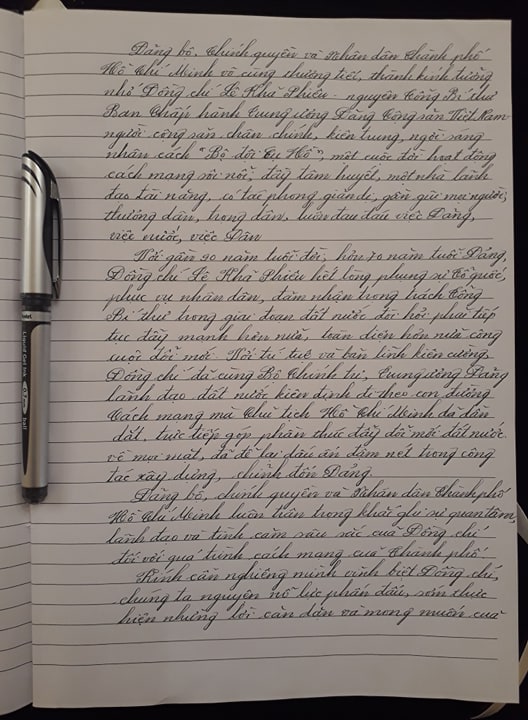 Đảng bộ, Chính quyền và Nhân dân Thành phố
Hồ Chí Minh vô cùng thương tiếc, thành kính tưởng
nhớ Đồng chí Lê Khả Phiêu - nguyên Tổng Bí thư
Ban Chấp hành Trung ương Đảng Cộng sản Việt Nam -
người cộng sản chân chính, kiên trung, ngời sáng
nhân cách "Bộ đội Cụ Hồ", một cuộc đời hoạt động
cách mạng sôi nổi, đầy tâm huyết, một nhà lãnh
đạo tài năng, có tác phong giản dị, gần gũi mọi người,
thương dân, trọng dân, luôn đau đáu việc Đảng,
việc nước, việc Dân
Với gần 90 năm tuổi đời, hơn 70 năm tuổi Đảng,
Đồng chí Lê Khả Phiêu hết lòng phụng sự Tổ quốc,
phục vụ nhân dân, đảm nhận trọng trách Tổng
Bí thư trong giai đoạn đất nước đòi hỏi phải tiếp
tục đẩy mạnh hơn nữa, toàn diện hơn nữa công
cuộc đổi mới. Với trí tuệ và bản lĩnh kiên cường,
Đồng chí đã cùng Bộ Chính trị, Trung ương Đảng
lãnh đạo đất nước kiên định đi theo con đường
Cách mạng mà Chủ tịch Hồ Chí Minh đã dẫn
dắt, trực tiếp góp phần thúc đẩy đổi mới đất nước
về mọi mặt, đã để lại dấu ấn đậm nét trong công
tác xây dựng, chỉnh đốn Đảng.
Đảng bộ, chính quyền và Nhân dân Thành phố
Hồ Chí Minh luôn trân trọng khắc ghi sự quan tâm,
lãnh đạo và tình cảm sâu sắc của Đồng chí
đối với quá trình cách mạng của Thành phố
Kính cẩn nghiêng mình vĩnh biệt Đồng chí,
chúng ta nguyện nỗ lực phấn đấu, sớm thực
hiện những lời căn dặn và mong muốn của
Liquid Gel Ink
0.7 mm
Ball